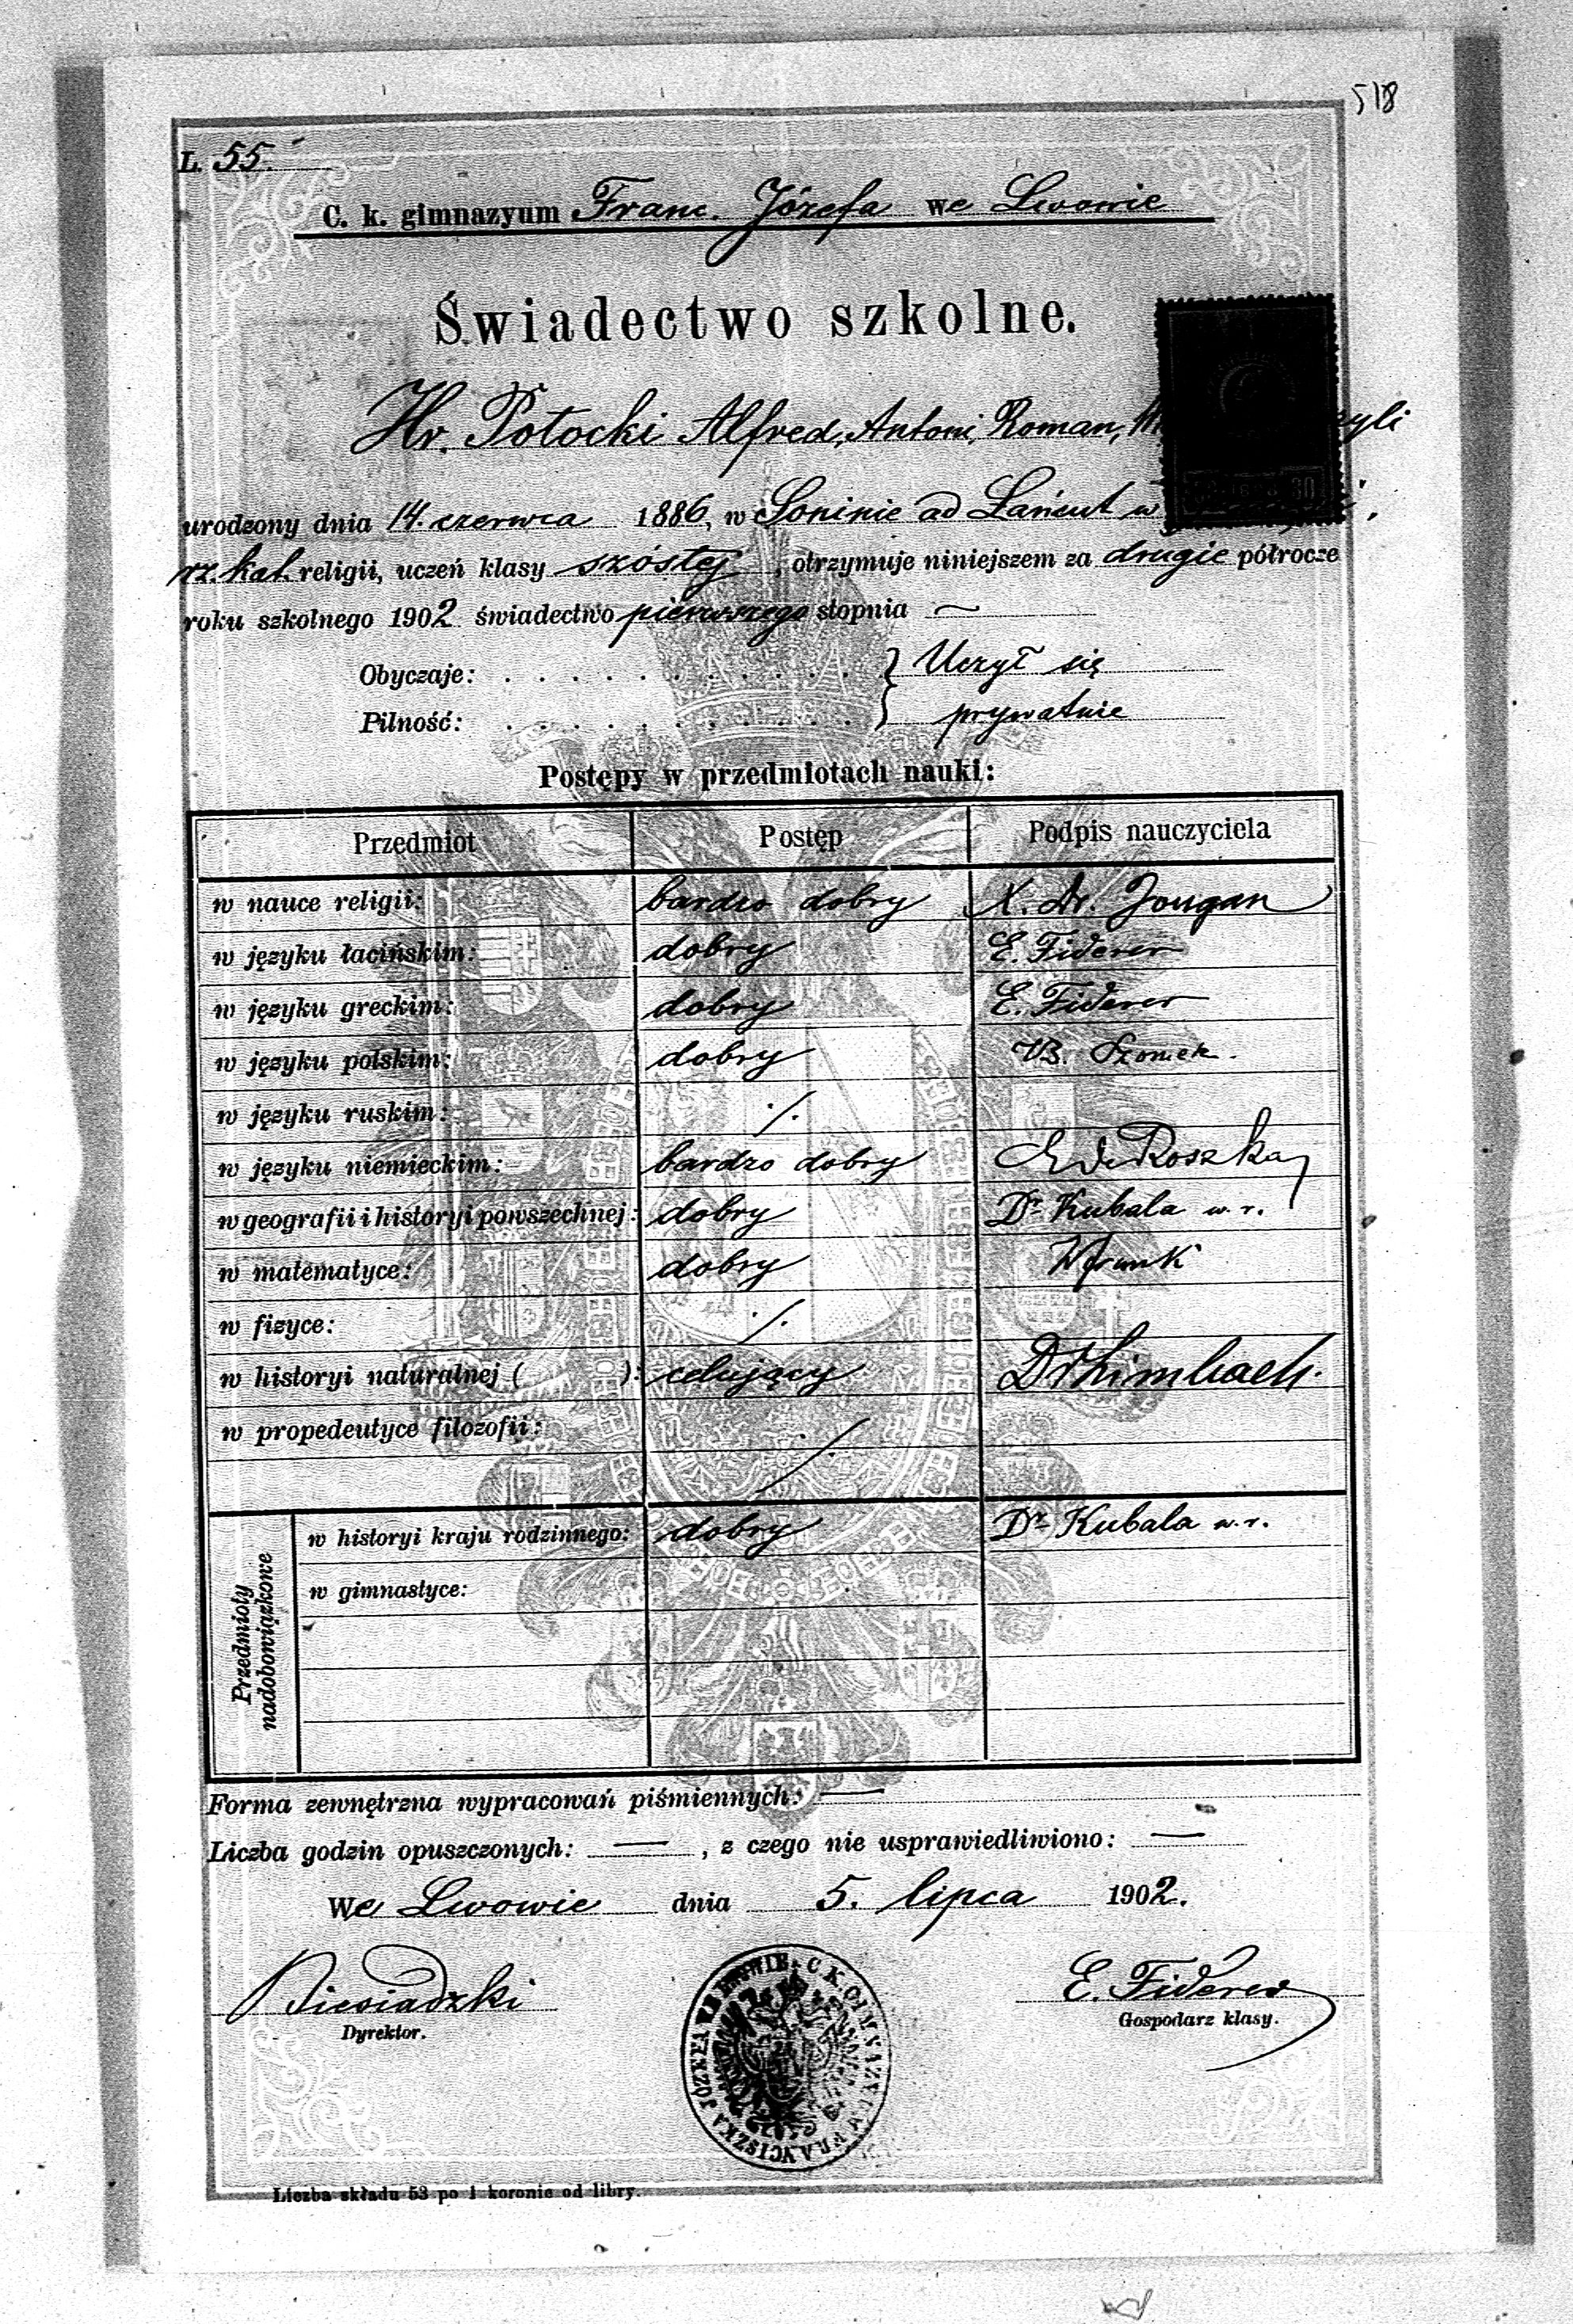 518
L. 55.
C. k. gimnazyum Franc. Józefa we Lwowie
Świadectwo szkolne.
Hr. Potocki Alfred, Antoni, Roman,
urodzony dnia 14. czerwca 1886, w Soninie ad Łańcut w
rz. kat. religii, uczeń klasy szóstej, otrzymuje niniejszem za drugie półrocze
roku szkolnego 1902 świadectwo pierwszego stopnia —
Obyczaje: . . . . . . . . . . . } Uczył się
Pilność: . . . . . . . . . . . } prywatnie
Postępy w przedmiotach nauki:
Przedmiot Postęp Podpis nauczyciela
w nauce religii: bardzo dobry X. Dr. Jougan
w języku łacińskim: dobry E. Fiderer
w języku greckim: dobry E. Fiderer
w języku polskim: dobry
w języku ruskim: ./.
w języku niemieckim: bardzo dobry Roszka
w geografii i historyi powszechnej: dobry Dr. Kubala w. r.
w matematyce: dobry
w fizyce: ./.
w historyi naturalnej ( ): celujący Dr Limbach.
w propedeutyce filozofii: ./.
Przedmioty nadobowiązkowe
w historyi kraju rodzinnego: dobry Dr. Kubala w. r.
w gimnastyce:
Forma zewnętrzna wypracowań piśmiennych: —
Liczba godzin opuszczonych: — , z czego nie usprawiedliwiono: —
We Lwowie dnia 5. lipca 1902.
Biesiadzki E. Fiderer
Dyrektor. Gospodarz klasy.
C. K. GIMNAZYUM FRANCISZKA JÓZEFA WE LWOWIE
Liczba składu 53 po 1 koronie od libry.